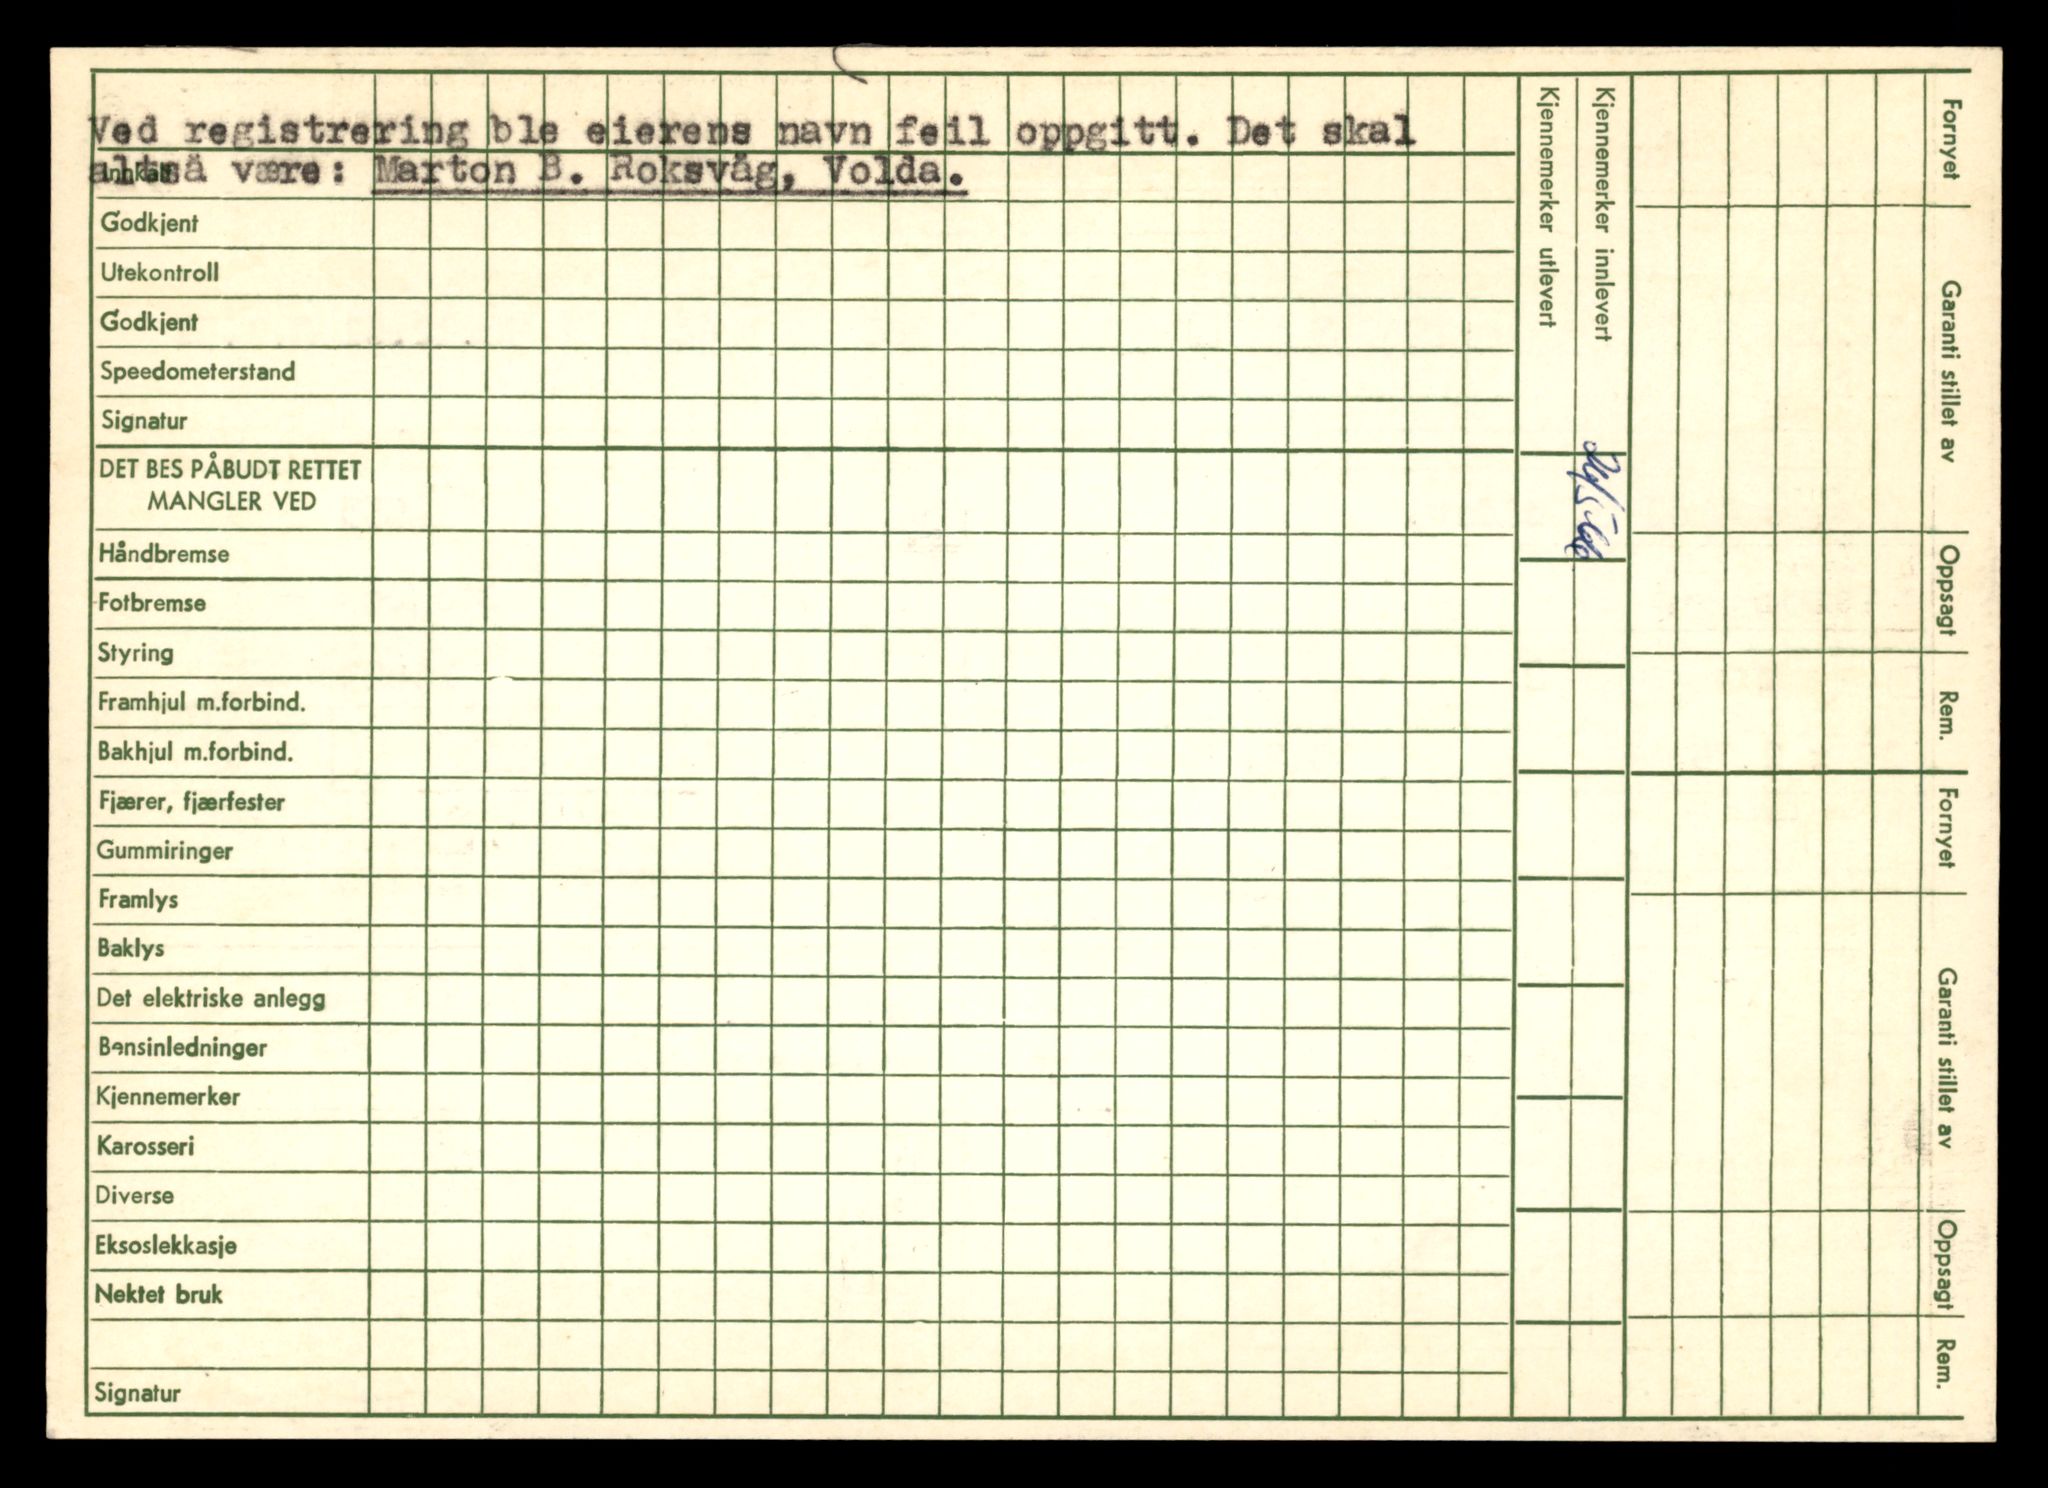 Ved registrering ble eierens navn feil oppgitt. Det skal
altså være: Marton B. Roksvåg, Volda.
Godkjent
Utekontroll
Godkjent
Speedometerstand
Signatur
DET BES PÅBUDT RETTET
MANGLER VED
Håndbremse
Fotbremse
Styring
Framhjul m.forbind.
Bakhjul m.forbind.
Fjærer, fjærfester
Gummiringer
Framlys
Baklys
Det elektriske anlegg
Bensinledninger
Kjennemerker
Karosseri
Diverse
Eksoslekkasje
Nektet bruk
Signatur
Kjennemerker utlevert
Kjennemerker innlevert
Fornyet
Garanti stillet av
Oppsagt
Rem.
Fornyet
Garanti stillet av
Oppsagt
Rem.